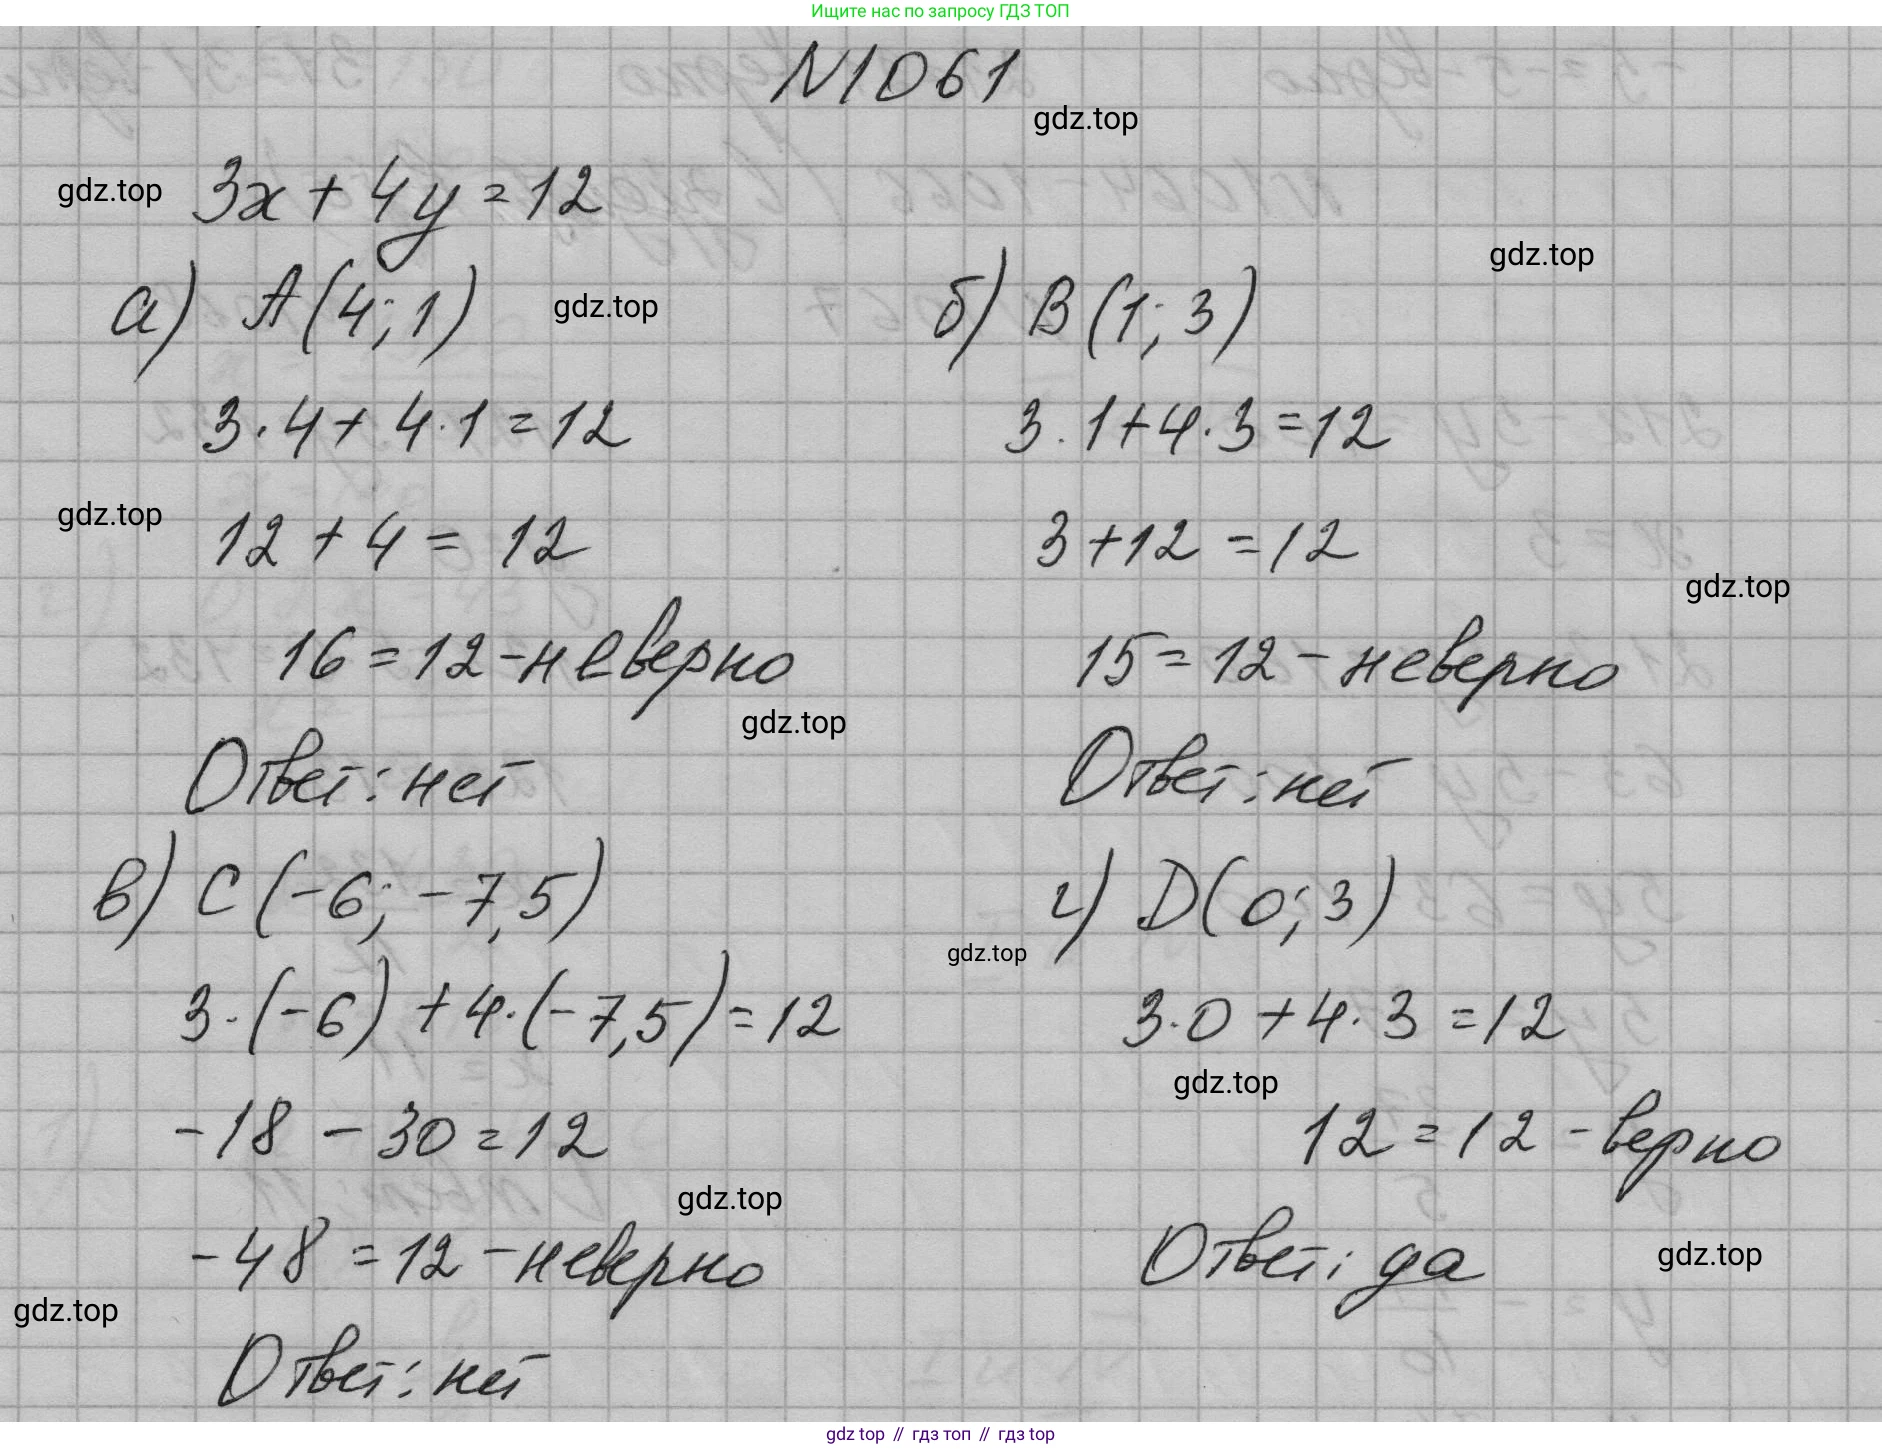 Ищите нас по запросу ГДЗ ТОП
N1061
gdz.top
gdz.top 3x + 4y = 12
gdz.top
а) A(4; 1)
gdz.top
3·4 + 4·1 = 12
gdz.top 12 + 4 = 12
16 = 12 - неверно
gdz.top
Ответ: нет
б) B(1; 3)
3·1 + 4·3 = 12
3 + 12 = 12
gdz.top
15 = 12 - неверно
Ответ: нет
в) C(-6; -7,5)
3·(-6) + 4·(-7,5) = 12
-18 - 30 = 12
gdz.top
-48 = 12 - неверно
gdz.top
Ответ: нет
г) D(0; 3)
gdz.top
3·0 + 4·3 = 12
gdz.top
12 = 12 - верно
Ответ: да
gdz.top
gdz top // гдз топ // гдз top